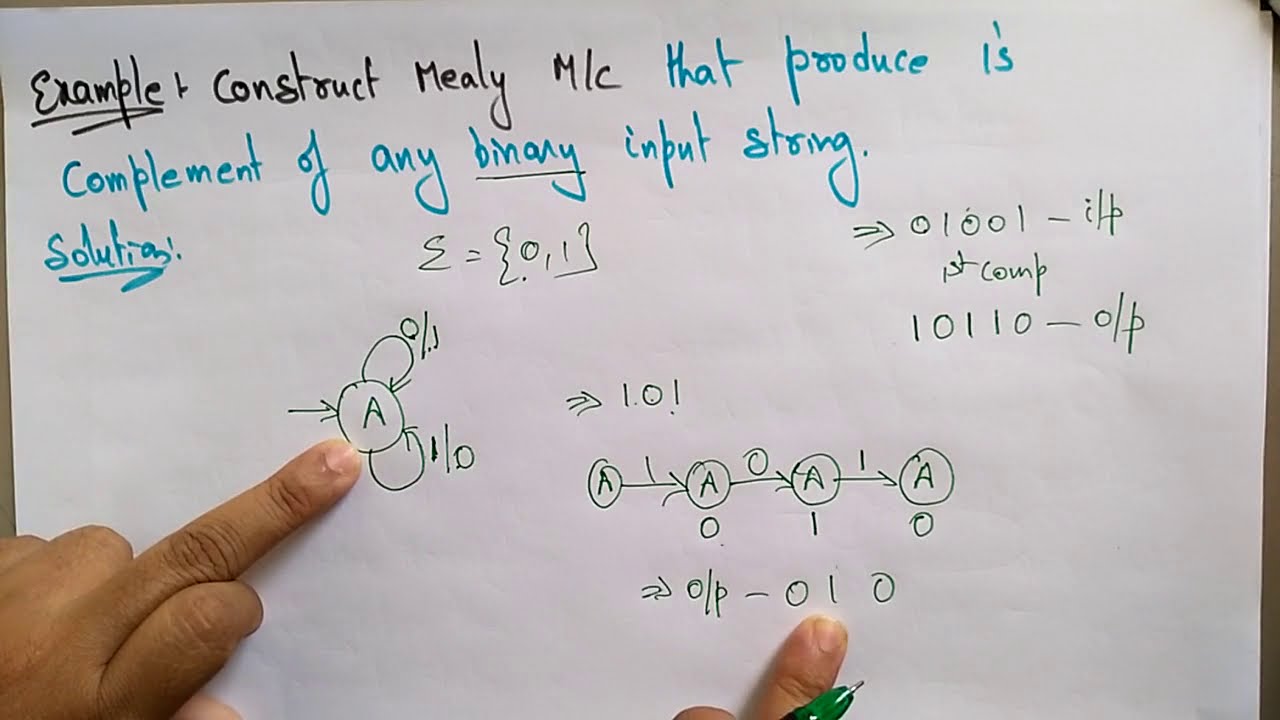 Example: Construct Mealy M/c that produce 1's
Complement of any binary input string.
Solution:
Σ = {0,1}
⇒ 01001 - i/p
1st comp
10110 - o/p
0/1
A
1/0
⇒ 1.01
A 1 A 0 A 1 A
0 1 0
⇒ o/p - 0 1 0